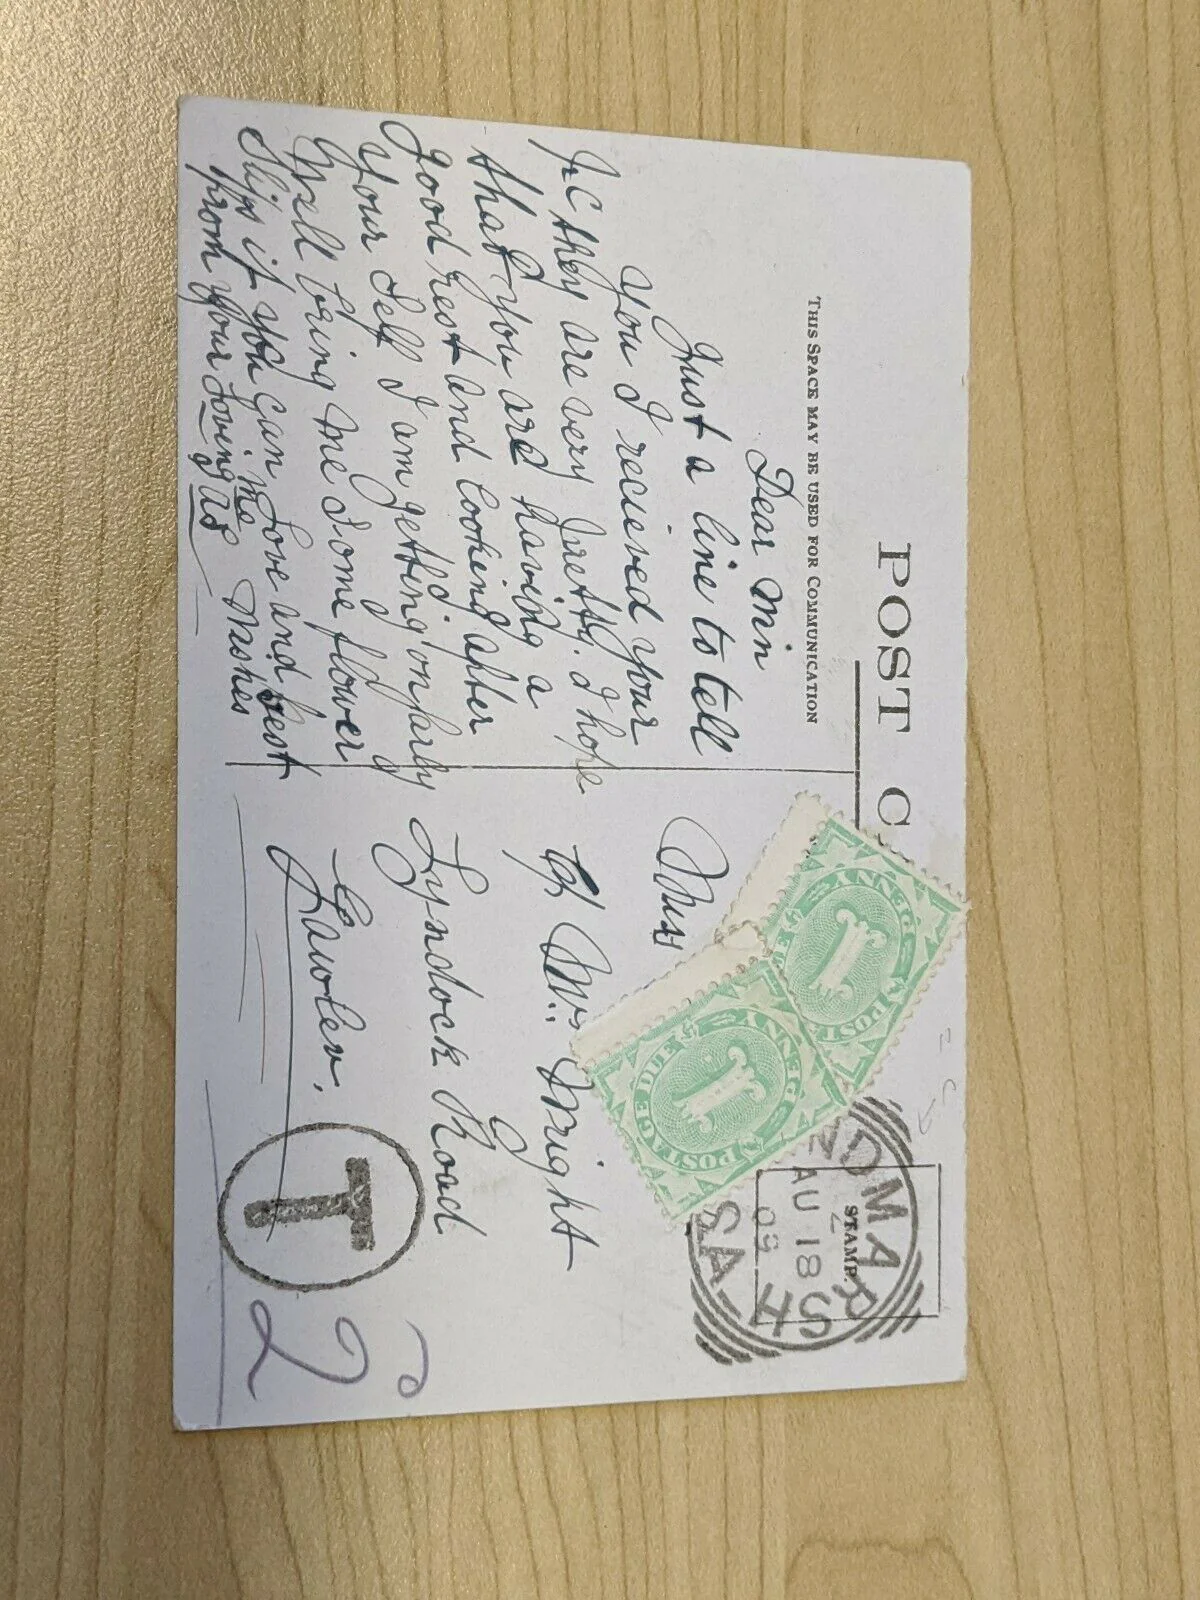 POST C
THIS SPACE MAY BE USED FOR COMMUNICATION
Dear Min
Just a line to tell
You I recieved your
P.C they are very Pretty. I hope
that you are having a
good rest and looking after
Your Self I am getting on fairly
Well bring me Some flower
Slips if you can Love and best
Wishes
from Your Loving
Miss
c/ Mr. Wright
Lyndock Road
Gawler.
POSTAGE DUE
1
PENNY
POSTAGE DUE
1
PENNY
STAMP.
HINDMARSH
AU 18
09
S.A
T
2